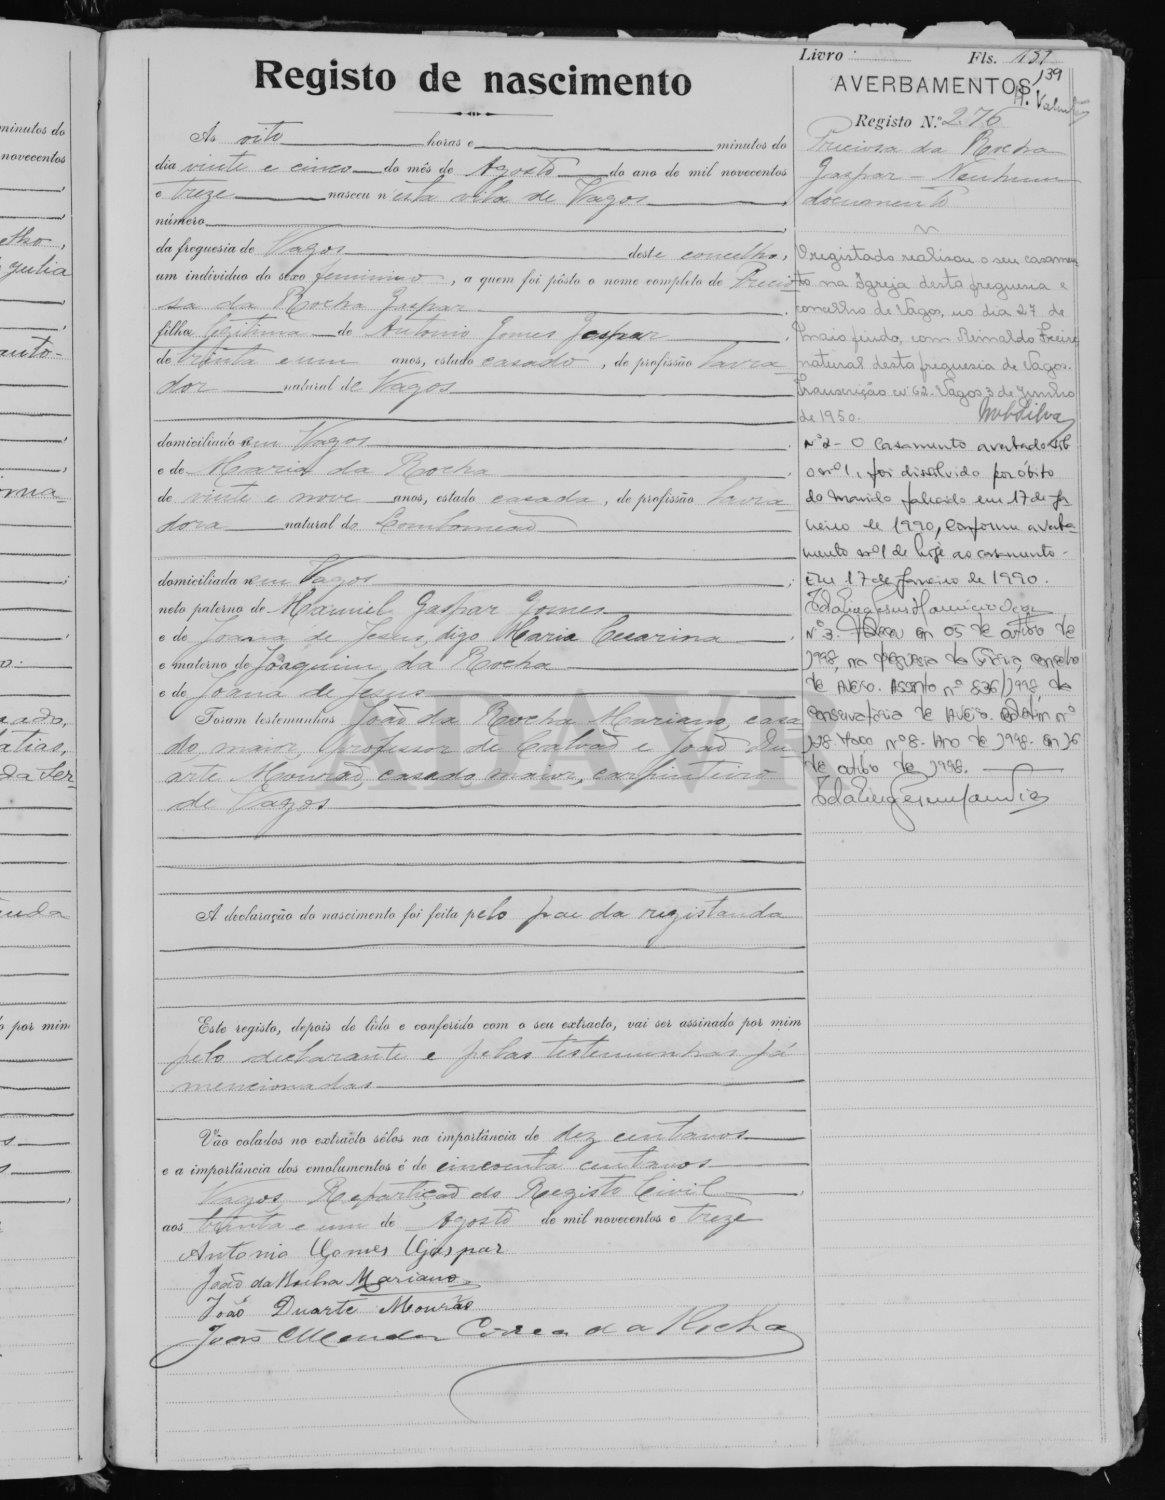 Livro Fls. 137
139
Registo de nascimento
AVERBAMENTOS
Registo N.º 276
Ás oito horas e minutos do
dia vinte e cinco do mês de Agosto do ano de mil novecentos
e treze nasceu n'esta vila de Vagos
número
da freguesia de Vagos deste concelho,
um indivíduo do sexo feminino, a quem foi pôsto o nome completo de Precio
sa da Rocha Gaspar
filha legitima de Antonio Gomes Gaspar
de trinta e um anos, estado casado, de profissão lavra
dor natural de Vagos
domiciliado em Vagos
e de Maria da Rocha
de vinte e nove anos, estado casada, de profissão lavra
dora natural de
domiciliada em Vagos
neto paterno de Manuel Gaspar Gomes
e de Joana de Jesus, digo Maria Cesarina
e materno de Joaquim da Rocha
e de Joana de Jesus
Foram testemunhas João da Rocha Mariano, casa
do, maior, professor de Calvão e João Du
arte Mourão, casado, maior, carpinteiro
de Vagos
A declaração do nascimento foi feita pelo pae da registanda
Este registo, depois de lido e conferido com o seu extracto, vai ser assinado por mim
pelo declarante e pelas testemunhas já
mencionadas
Vão colados no extracto sêlos na importância de dez centavos
e a importância dos emolumentos é de cincoenta centavos
Vagos, Repartição do Registo Civil
aos trinta e um de Agosto de mil novecentos e treze
Antonio Gomes Gaspar
João da Rocha Mariano
João Duarte Mourão
João Mendes Correa da Rocha
Preciosa da Rocha
Gaspar - Nenhum
documento
O registado realisou o seu casamen
to na Igreja desta freguesia e
concelho de Vagos, no dia 27 de
Maio findo, com Reinaldo Freire
natural desta freguesia de Vagos.
Transcrição nº 62. Vagos 3 de Junho
de 1950.
Nº 2 - O casamento averbado sob
o nº 1, foi dissolvido por óbito
do marido falecido em 17 de Ja-
neiro de 1990, conforme averba-
mento nº 1 de hoje ao casamento -
Em 17 de Janeiro de 1990.
Nº 3. Faleceu em 05 de outubro de
1998, na freguesia da Glória, concelho
de Aveiro. Assento nº 836/1998, da
Conservatória de Aveiro. Boletim nº
nº 8. Ano de 1998. em 16
de outubro de 1998.
ADAVR
minutos do
novecentos
por mim